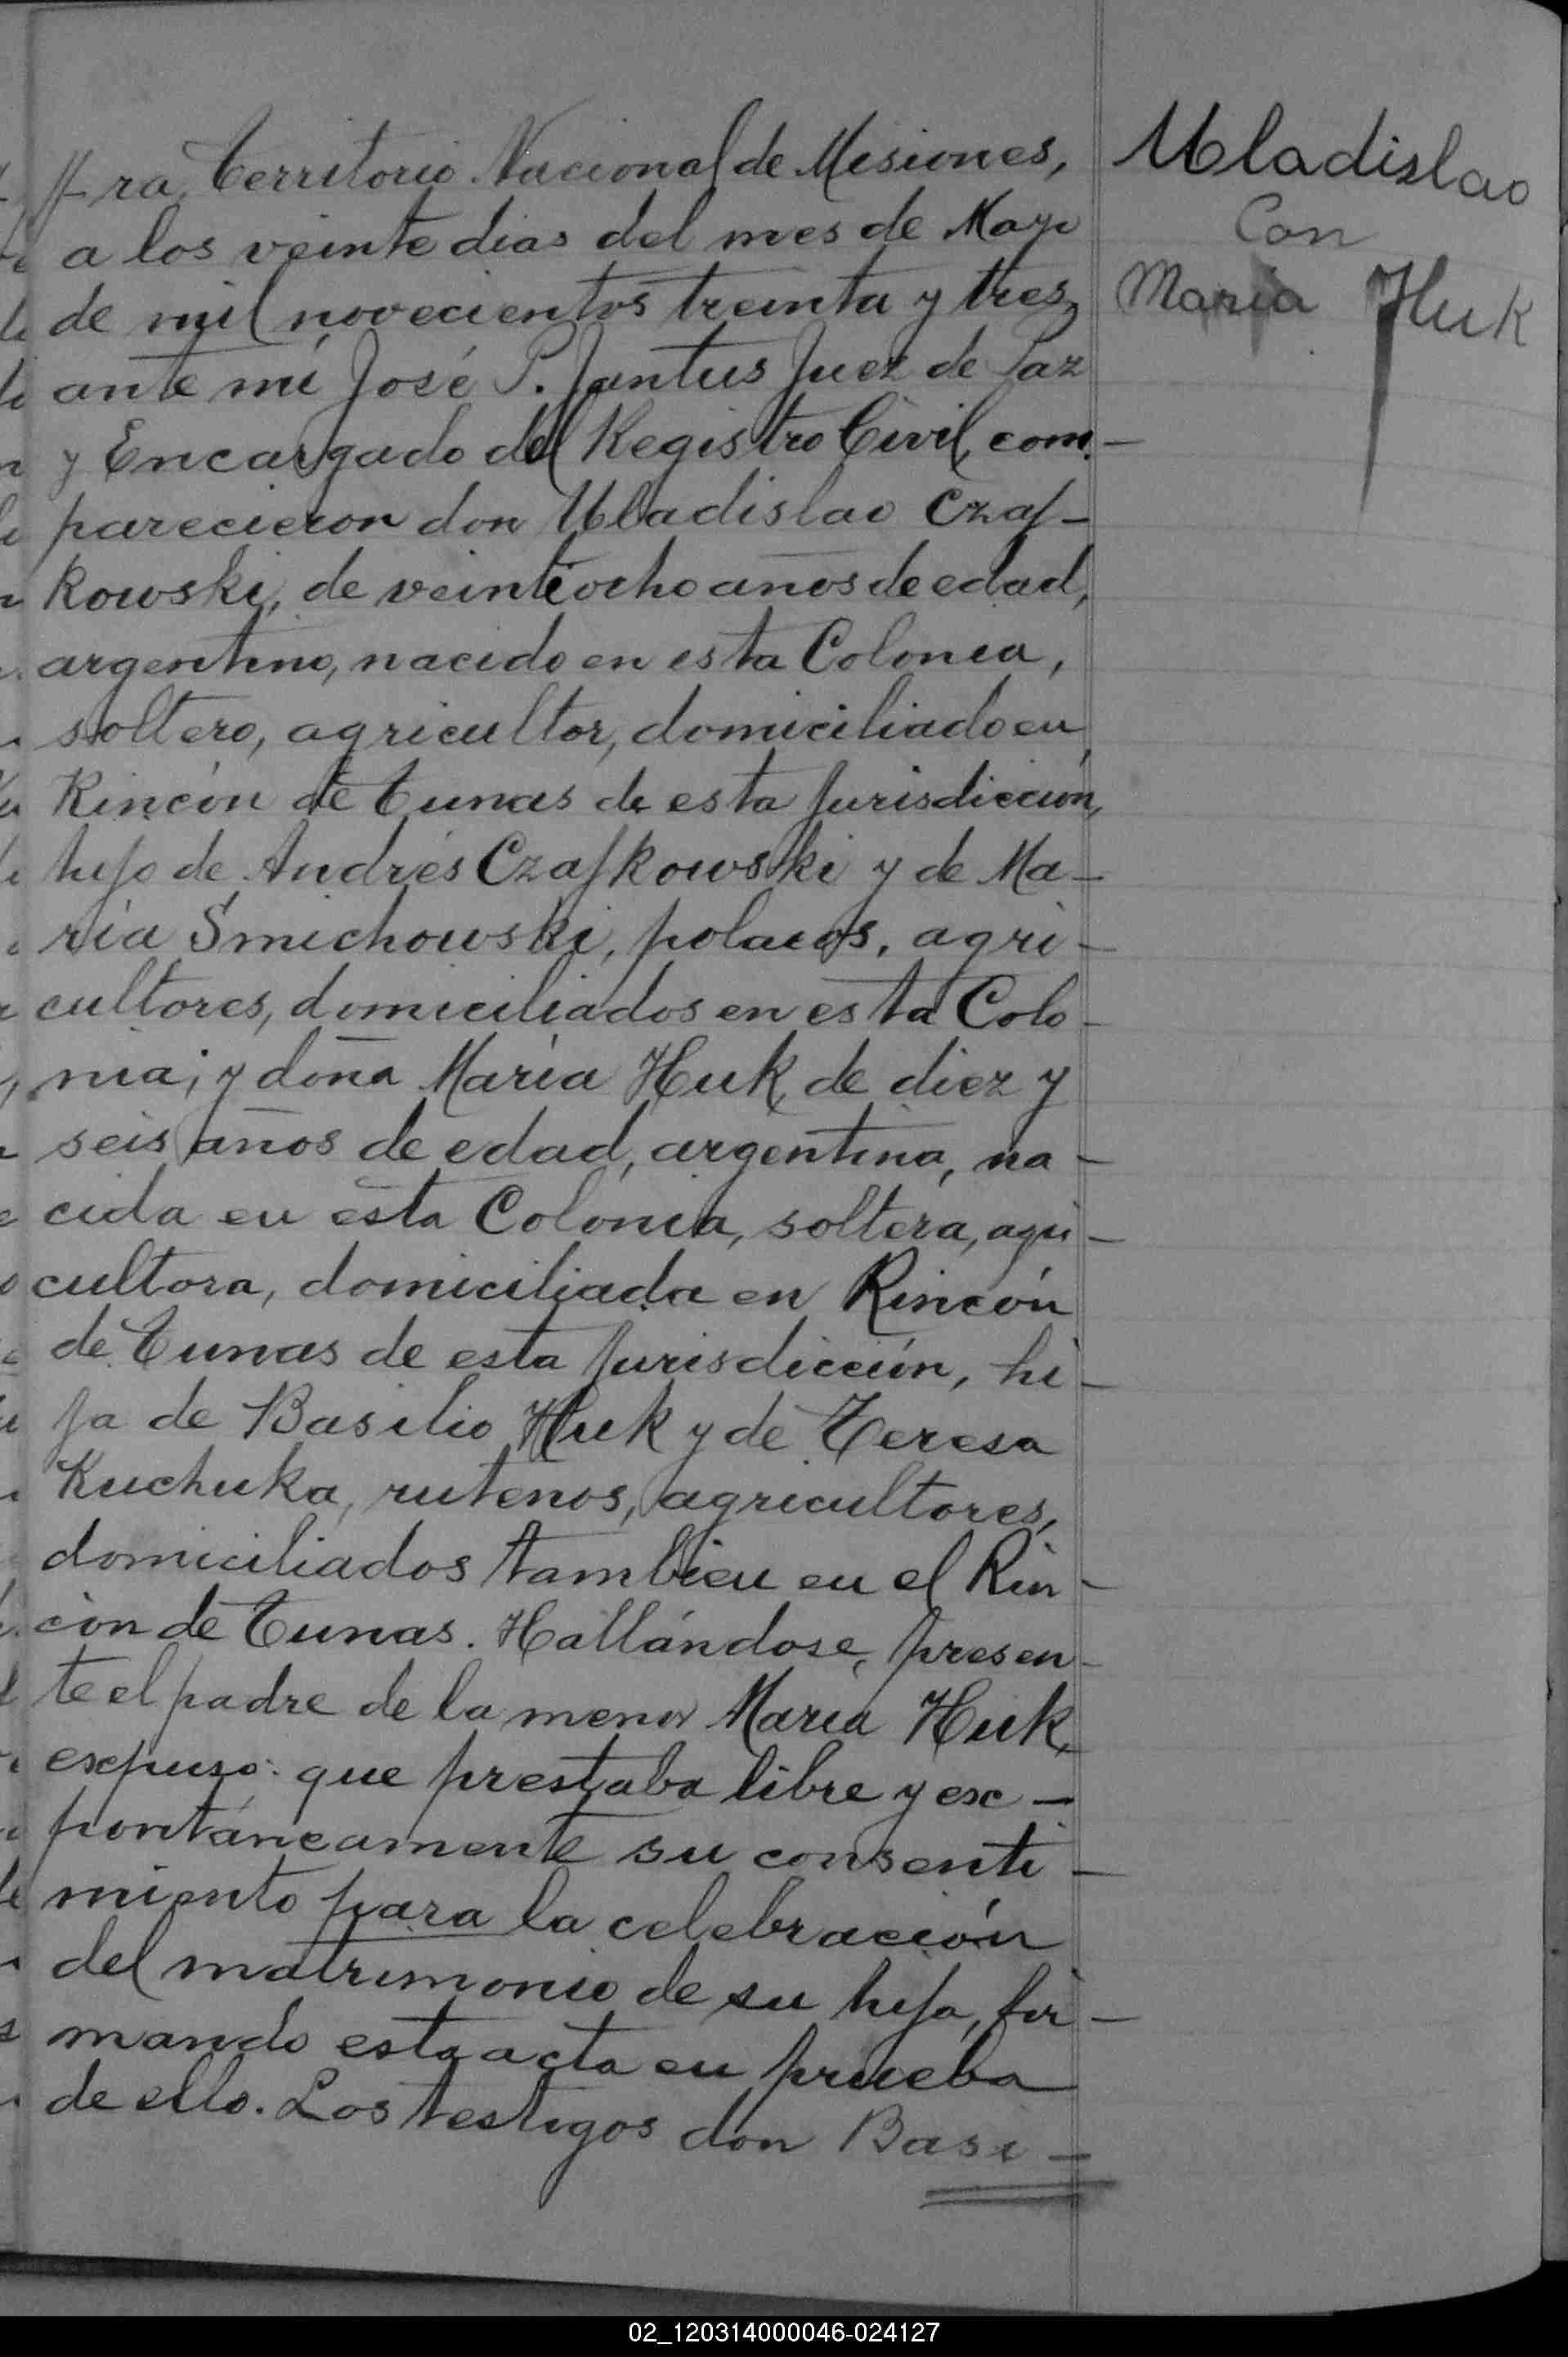 ra, Territorio Nacional de Misiones,
a los veinte dias del mes de Mayo
de mil novecientos treinta y tres,
ante mí José P. Jantus Juez de Paz
y Encargado del Registro Civil, com-
parecieron don Uladislao Czaj-
kowski, de veintiocho años de edad,
argentino, nacido en esta Colonia,
soltero, agricultor, domiciliado en
Rincón de Tunas de esta jurisdicción,
hijo de Andrés Czajkowski y de Ma-
ría Smichowski, polacos, agri-
cultores, domiciliados en esta Colo-
nia; y doña María Huk, de diez y
seis años de edad, argentina, na-
cida en esta Colonia, soltera, agri-
cultora, domiciliada en Rincón
de Tunas de esta jurisdicción, hi-
ja de Basilio Huk y de Teresa
Kuchuka, rutenos, agricultores,
domiciliados tambien en el Rin-
cón de Tunas. Hallándose, presen-
te el padre de la menor María Huk,
expuso: que prestaba libre y ex-
pontáneamente su consenti-
miento para la celebración
del matrimonio de su hija, fir-
mando esta acta en prueba
de ello. Los testigos don Basi-
Uladislao
Con
Maria Huk
02_120314000046-024127